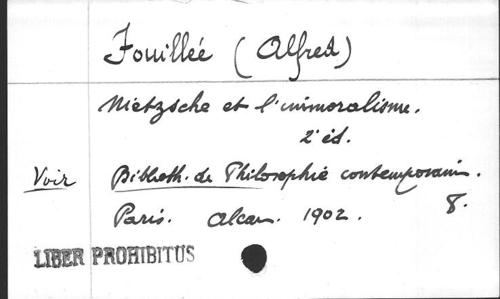 Fouillée (Alfred)
Nietzsche et l'immoralisme.
2e éd.
Voir Biblioth. de Philosophie contemporain.
8.
Paris. Alcan. 1902.
LIBER PROHIBITUS